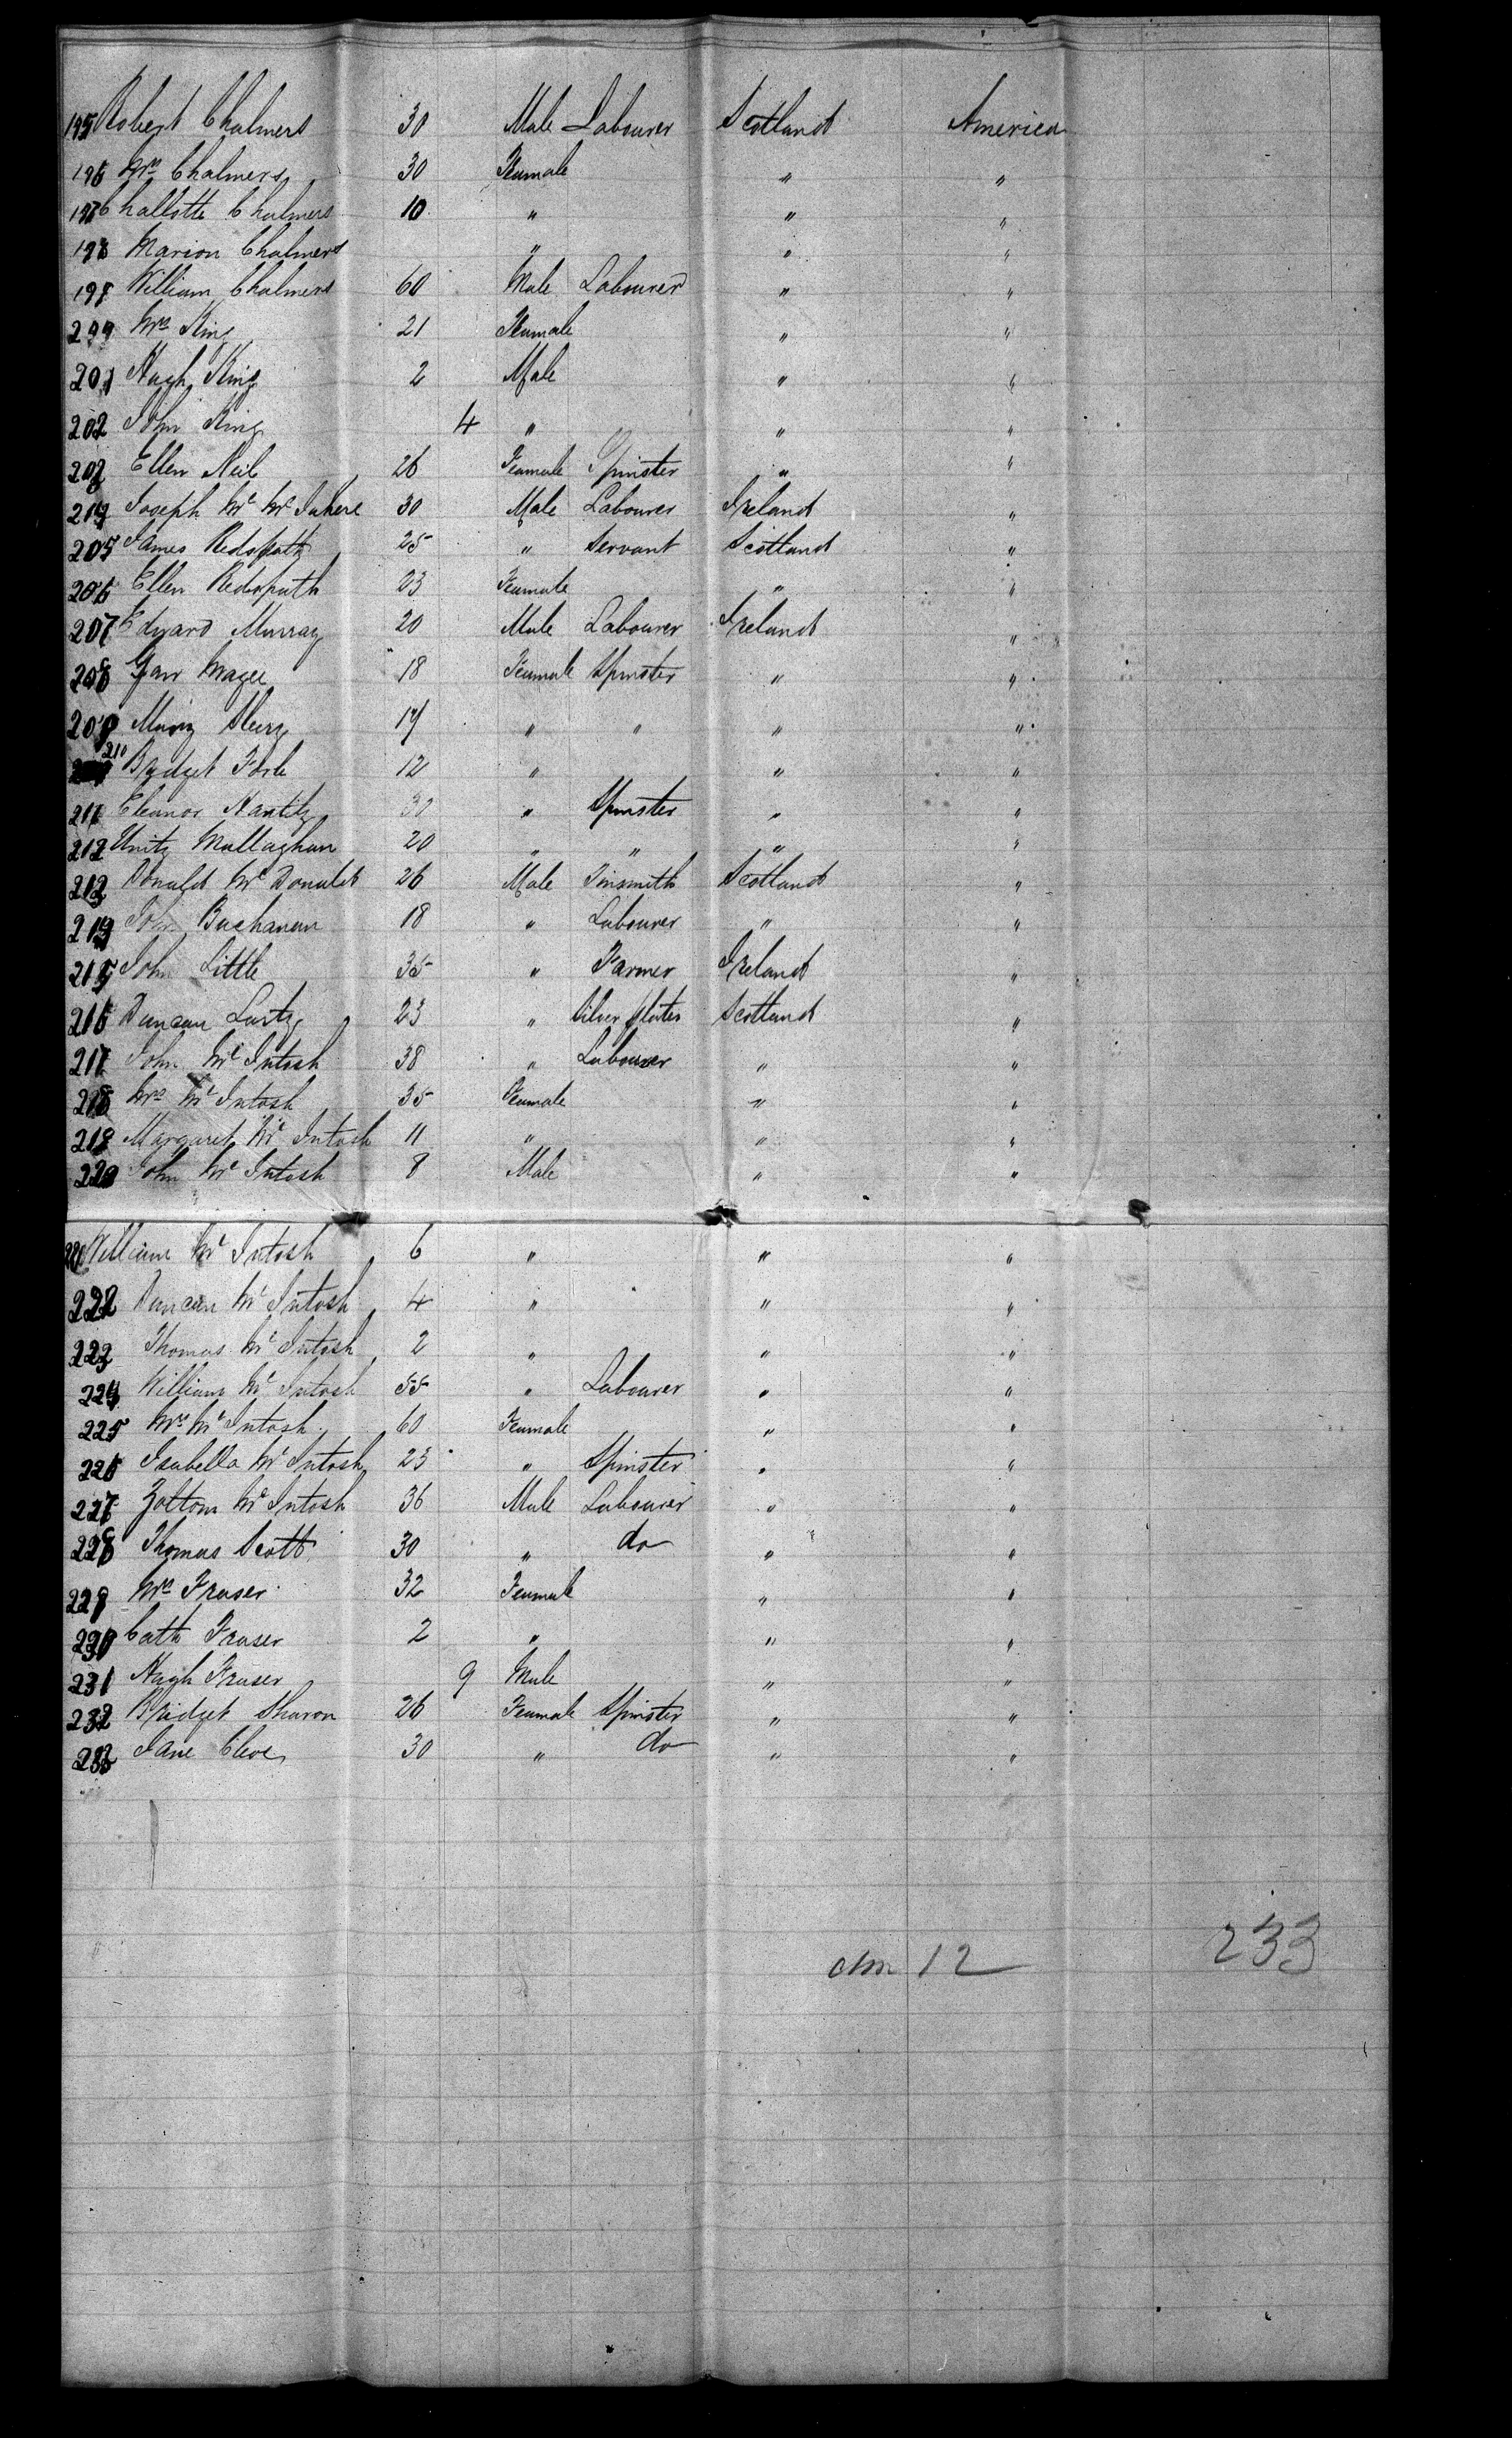 195 Robert Chalmers 30 Male Labourer Scotland America
196 Mrs Chalmers 30 Feumale " "
197 Challotte Chalmers 10 " " "
198 Marion Chalmers " " "
199 William Chalmers 60 Male Labourer " "
Mrs King 21 Feumale " "
201 Hugh King 2 Male " "
202 John King 4 " " "
203 Ellen Neil 26 Feumale Spinster " "
204 Joseph Mc 30 Male Labourer Ireland "
205 James Redspath 25 " Servant Scotland "
206 Ellen Redspath 23 Feumale " "
207 Edward Murray 20 Male Labourer Ireland "
208 Magee 18 Feumale Spinster " "
209 " " " "
210 Bridget 12 " " "
211 Eleanor 30 " Spinster " "
212 Unity Mullaghan 20 " " " "
213 Donald Mc Donald 26 Male Tinsmith Scotland "
214 John Buchanan 18 " Labourer " "
215 John Little 35 " Farmer Ireland "
216 Duncan 23 " Silver Plater Scotland "
217 John Mc Intosh 38 " Labourer " "
218 Mrs Mc Intosh 35 Feumale " "
219 Margaret Mc Intosh 11 " " "
220 John Mc Intosh 8 Male " "
221 William Mc Intosh 6 " " "
222 Duncan Mc Intosh 4 " " "
223 Thomas Mc Intosh 2 " " "
224 William Mc Intosh 55 " Labourer " "
225 Mrs Mc Intosh 60 Feumale " "
226 Isabella Mc Intosh 23 " Spinster " "
227 Mc Intosh 36 Male Labourer " "
228 Thomas Scott 30 " do " "
229 Mrs Fraser 32 Feumale " "
230 Cath Fraser 2 " " "
231 Hugh Fraser 9 Male " "
232 Bridget Sharon 26 Feumale Spinster " "
233 Jane 30 " do " "
233
12